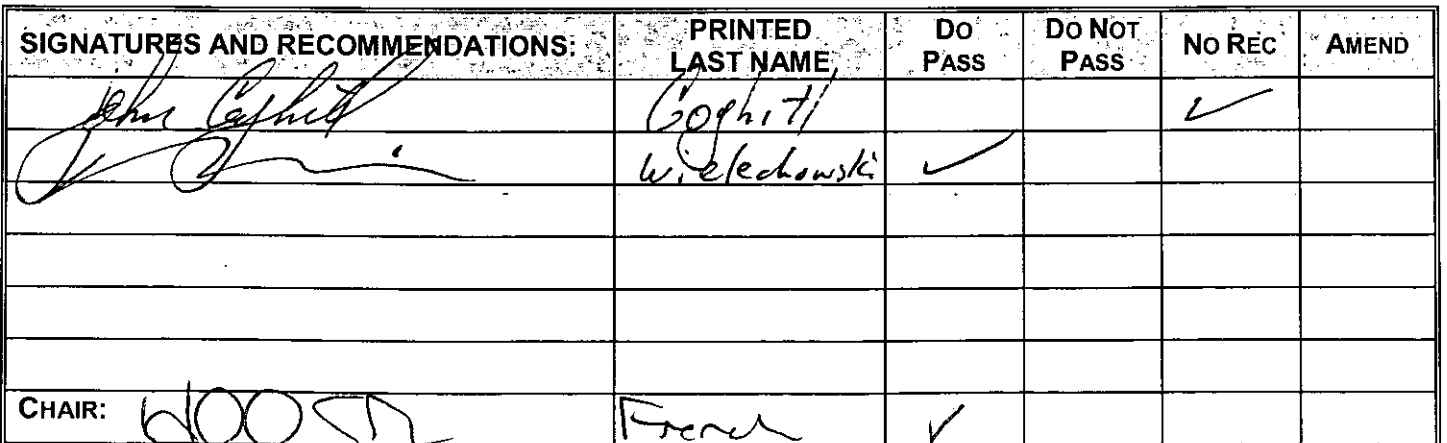 SIGNATURES AND RECOMMENDATIONS: PRINTED LAST NAME DO PASS DO NOT PASS NO REC AMEND
John Coghill Coghill ✓
Wielechowski ✓
CHAIR: French ✓